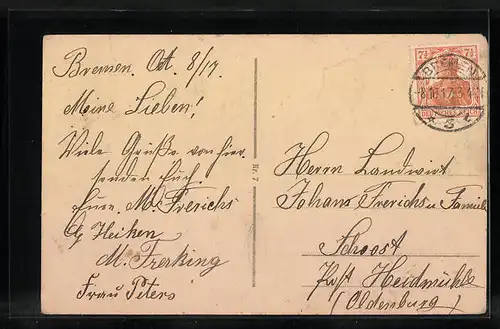 Bremen. Oct. 8/17.
Meine Lieben!
Viele Grüße von hier
senden Euch
Eure. M. Frerichs
Heiken
M. Frerking
Frau Peters
Nr. 7
7½ 7½
BREMEN
Herrn Landwirt
Johans Frerichs u Familie
Schoost
Post Heidmühle
(Oldenburg)